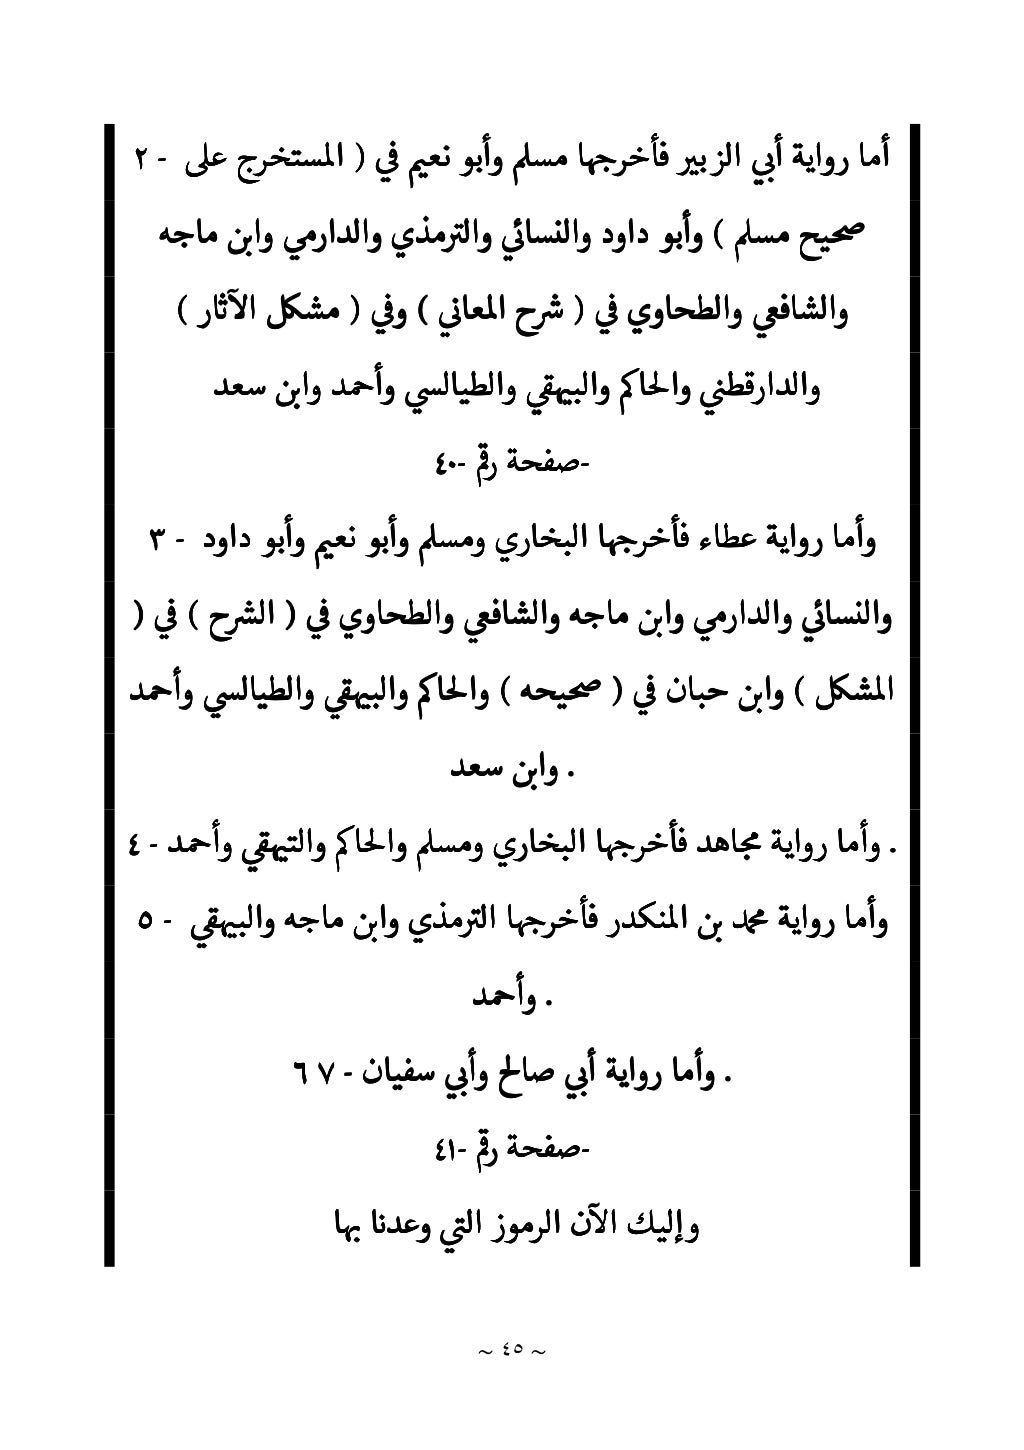 أما رواية أبي الزبير فأخرجها مسلم وأبو نعيم في ( المستخرج على - ٢
صحيح مسلم ) وأبو داود والنسائي والترمذي والدارمي وابن ماجه
والشافعي والطحاوي في ( شرح المعاني ) وفي ( مشكل الآثار )
والدارقطني والحاكم والبيهقي والطيالسي وأحمد وابن سعد
-صفحة رقم -٤٠
وأما رواية عطاء فأخرجها البخاري ومسلم وأبو نعيم وأبو داود - ٣
والنسائي والدارمي وابن ماجه والشافعي والطحاوي في ( الشرح ) في (
المشكل ) وابن حبان في ( صحيحه ) والحاكم والبيهقي والطيالسي وأحمد
. وابن سعد
. وأما رواية مجاهد فأخرجها البخاري ومسلم والحاكم والتيهقي وأحمد - ٤
وأما رواية محمد بن المنكدر فأخرجها الترمذي وابن ماجه والبيهقي - ٥
. وأحمد
. وأما رواية أبي صالح وأبي سفيان - ٧ ٦
-صفحة رقم -٤١
وإليك الآن الرموز التي وعدنا بها
~ ٤٥ ~